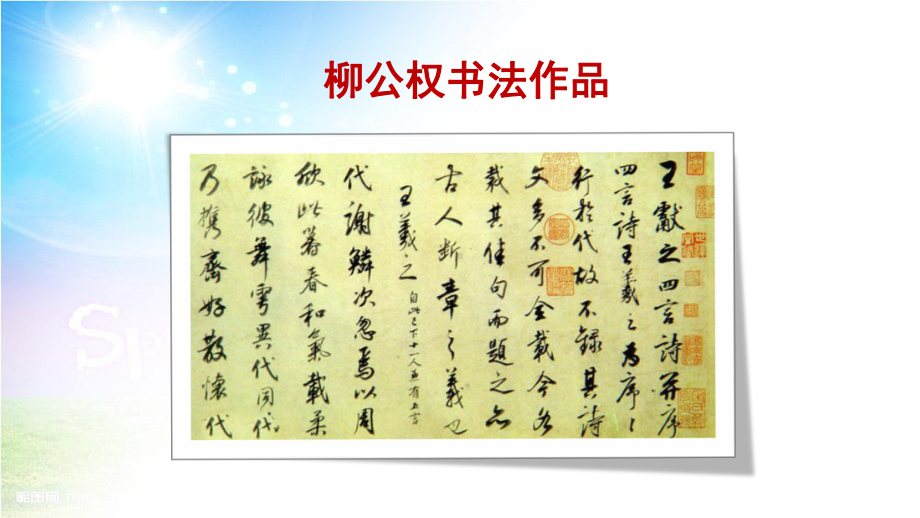 柳公权书法作品
王獻之四言詩并序
四言詩王羲之為序〻
行於代故不錄其詩
文多不可全載今各
裁其佳句而題之亦
古人斷章之義也
王羲之 自此已下十一人並有五言
代謝鱗次忽焉以周
欣此暮春和氣載柔
詠彼舞雩異代同
乃攜齊好散懷
Sp
昵图网